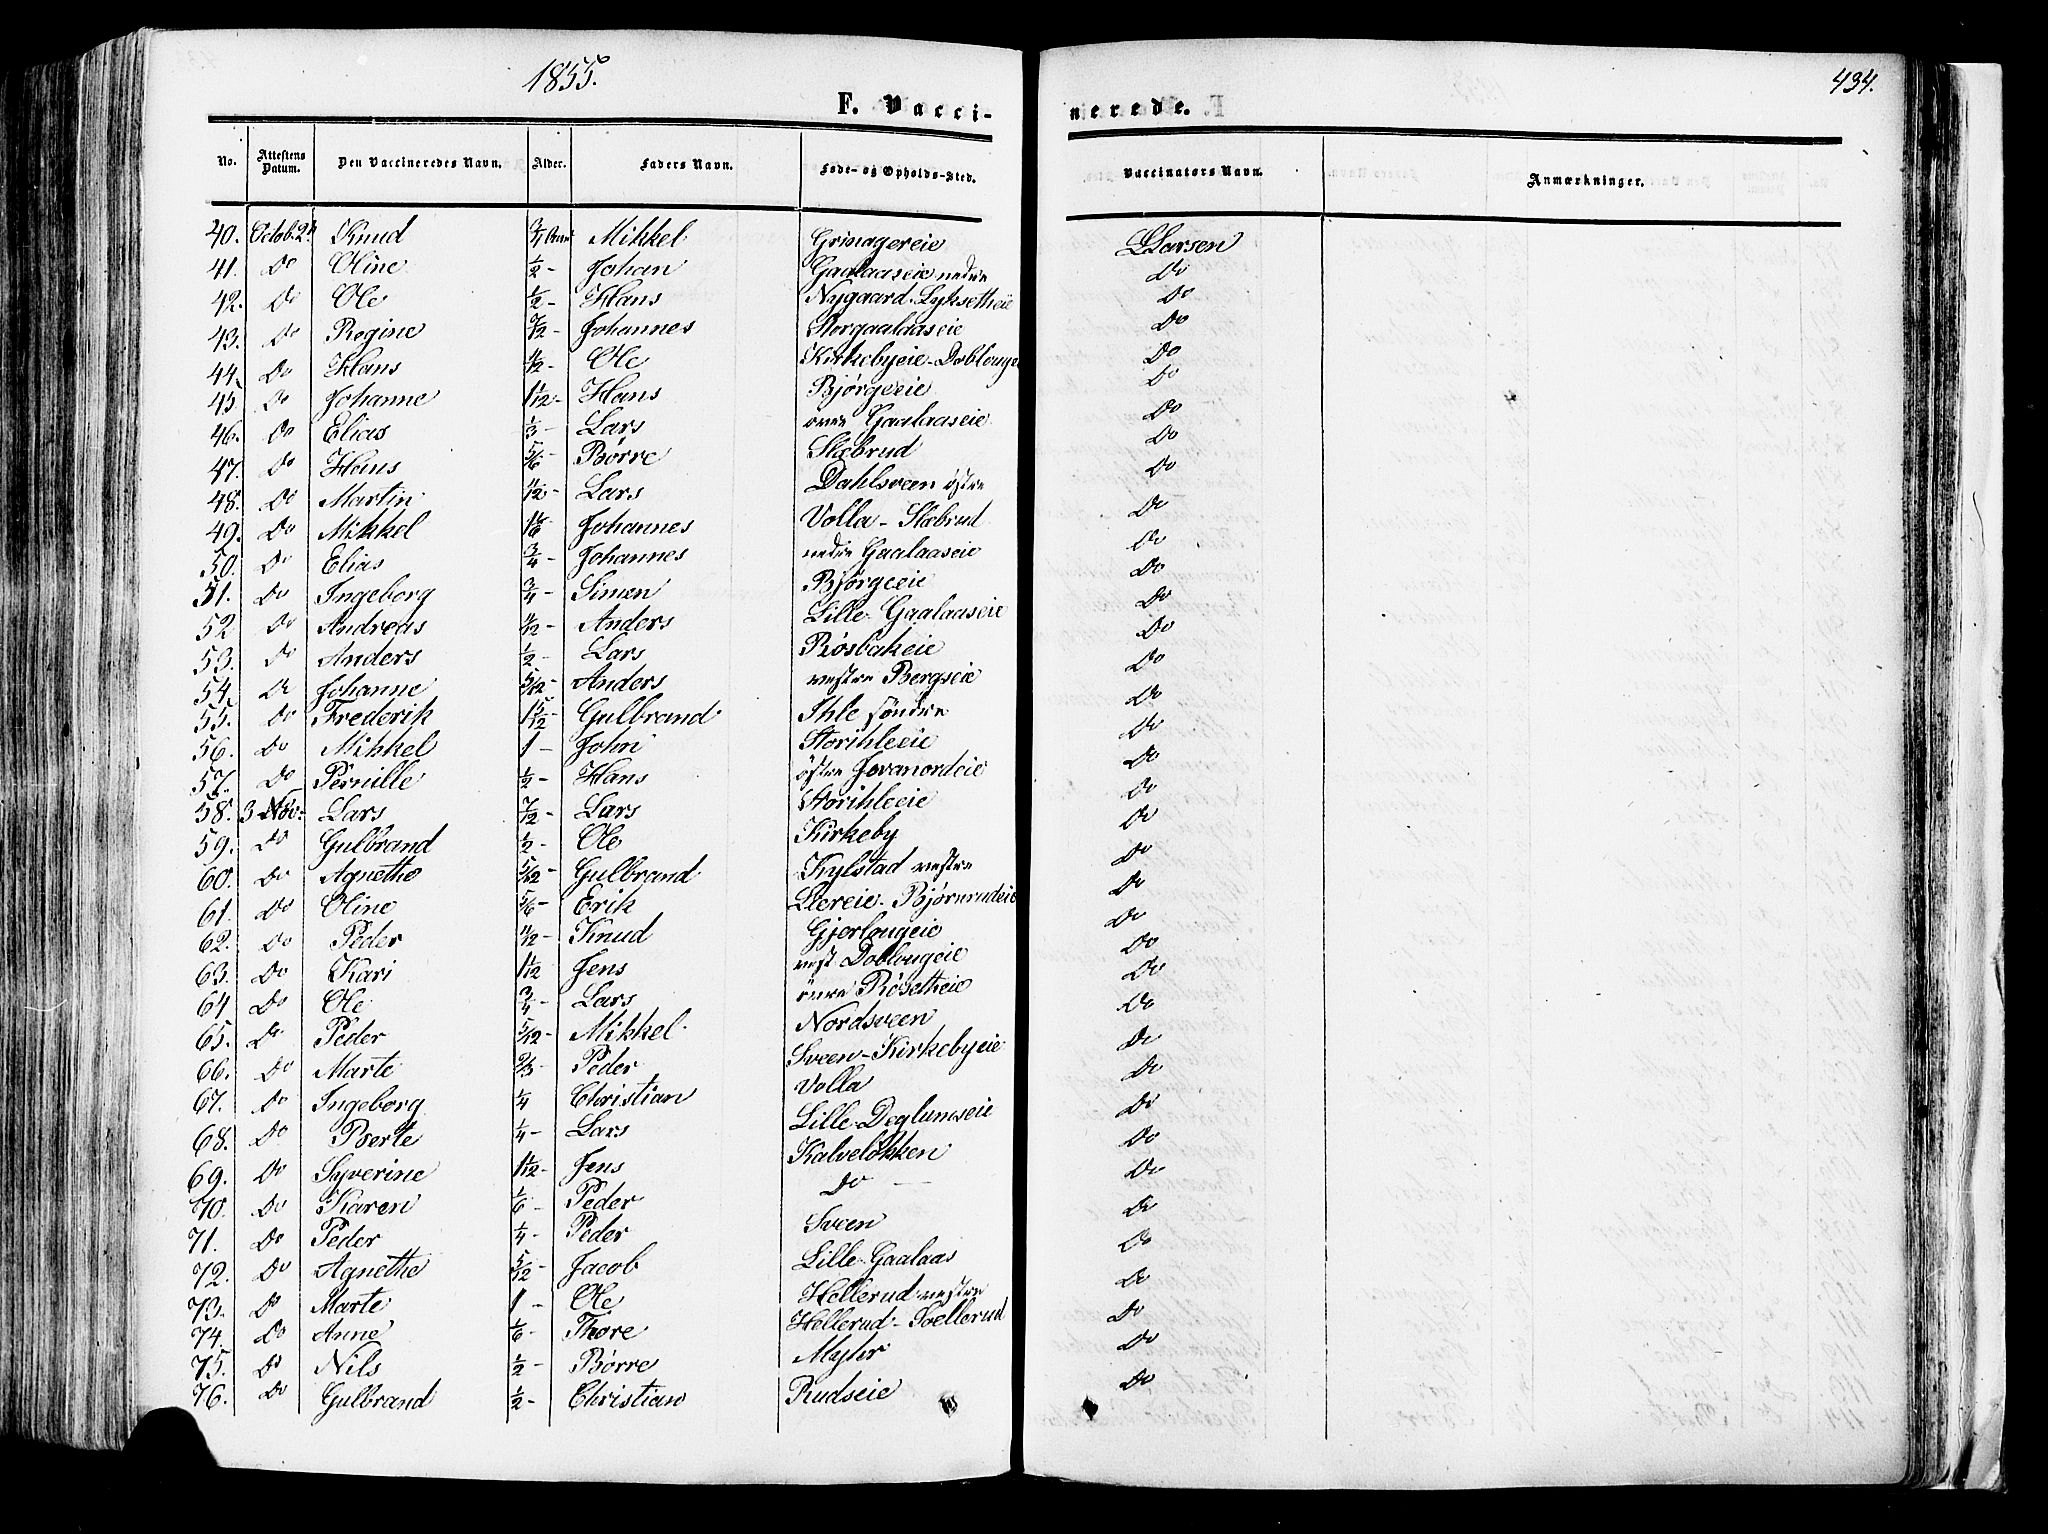 1855.
434.
F. Vacci-
nerede.
No. Attestens Datum. Den Vaccineredes Navn. Alder. Faders Navn. Føde- og Opholds-Sted. Vaccinators Navn. Anmærkninger.
40. Octob. 2 Knud 3/4 Mikkel Grinagereie L Larsen
41. Do Oline 1/2 - Johan Gaalaaseie nedre Do
42. Do Ole 1/2 - Hans Nygaard-Lyksetheie Do
43. Do Regine 7/12 - Johannes Storgaalaaseie Do
44. Do Hans 11/12 - Ole Kirkebyeie-Doblouge Do
45. Do Johanne 1 1/12 - Hans Bjørgeeie Do
46. Do Elias 1/3 - Lars øvre Gaalaaseie Do
47. Do Hans 5/6 - Børre Slæbrud Do
48. Do Martin 11/12 - Lars Dahlsveen østre Do
49. Do Mikkel 1 1/6 - Johannes Volla - Slæbrud Do
50. Do Elias 3/4 - Johannes nedre Gaalaaseie Do
51. Do Ingeborg 3/4 - Simen Bjørgeeie Do
52 Do Andreas 11/12 - Anders Lille Gaalaaseie Do
53. Do Anders 1/2 - Lars Røsbakeie Do
54. Do Johanne 5/12 - Anders vestre Bergseie Do
55. Do Frederik 1 5/12 - Gulbrand Ihle søndre Do
56. Do Mikkel 1 - John Storihleeie Do
57. Do Pernille 1/2 - Hans østre Jevanordeie Do
58. 3 Nov. Lars 7/12 - Lars Storihleeie Do
59. Do Gulbrand 1/2 - Ole Kirkeby Do
60. Do Agnethe 5/12 - Gulbrand Kylstad vestre Do
61. Do Oline 5/6 - Erik Lereie-Bjørnrudeie Do
62. Do Peder 11/12 - Knud Gjerlougeie Do
63. Do Kari 1 1/12 Jens vest Doblougeie Do
64 Do Ole 3/4 - Lars øvre Røsetheie Do
65. Do Peder 5/12 - Mikkel Nordsveen Do
66. Do Marte 2/3 - Peder Sveen-Kirkebyeie Do
67. Do Ingeborg 1/4 Christian Volla Do
68. Do Berte 1/4 - Lars Lille-Deglumseie Do
69. Do Syverine 1 1/12 - Jens Kalveløkken Do
70. Do Karen 1/6 - Peder Do Do
71. Do Peder 1/4 - Peder Sveen Do
72. Do Agnethe 5/12 - Jacob Lille-Gaalaas Do
73. Do Marte 1 - Ole Hellerud vestre Do
74. Do Anne 1/6 - Thore Hellerud - Soellerud Do
75. Do Nils 1/2 - Børre Myhr Do
76. Do Gulbrand 1/2 - Christian Rudseie Do